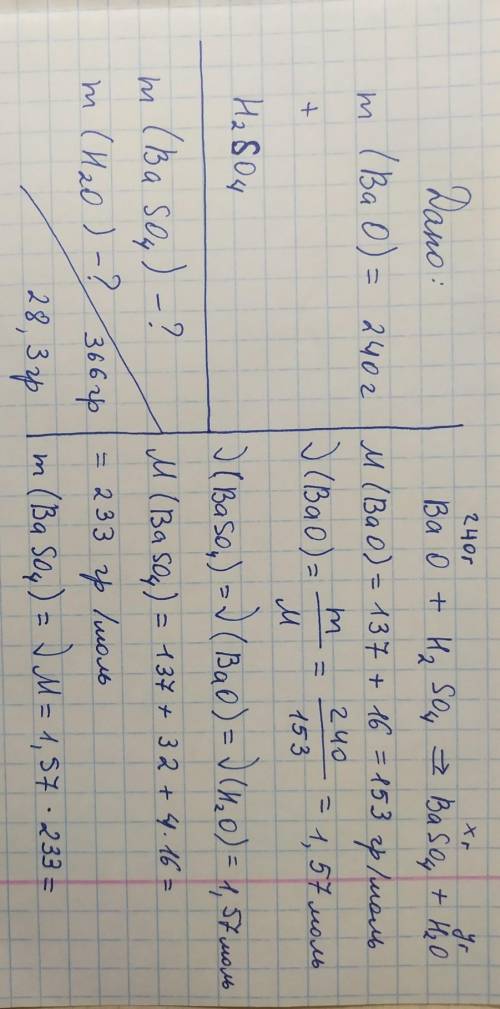 Дано:
m (BaO) = 240 г
+
H2SO4
m (BaSO4) - ?
m (H2O) - ? 366 гр
28,3 гр
240г xг yг
BaO + H2SO4 ⇒ BaSO4 + H2O
M (BaO) = 137 + 16 = 153 гр/моль
ν(BaO) = m/M = 240/153 = 1,57 моль
ν(BaSO4) = ν(BaO) = ν(H2O) = 1,57 моль
M (BaSO4) = 137 + 32 + 4·16 =
= 233 гр/моль
m (BaSO4) = νM = 1,57 · 233 =